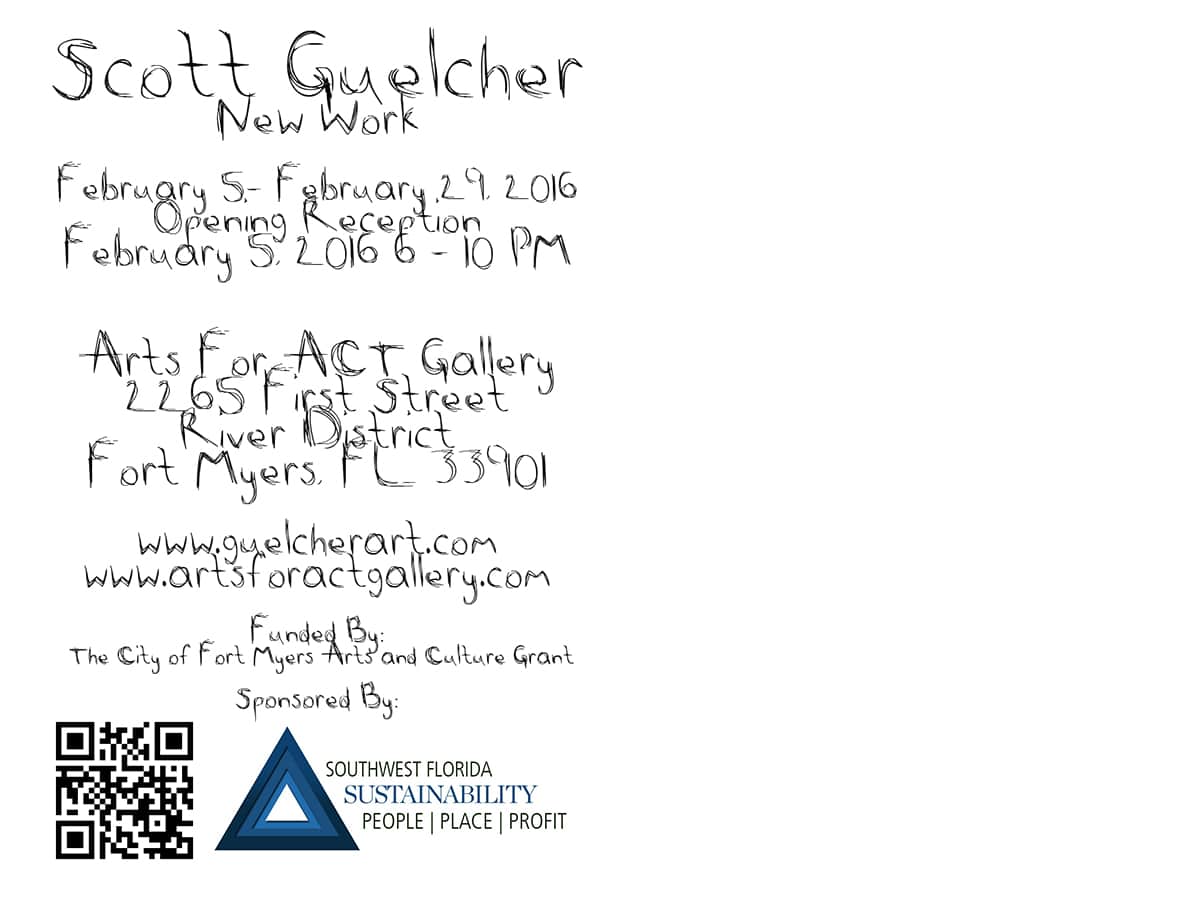 Scott Guelcher
New Work
February 5.- February 29. 2016
Opening Reception
February 5. 2016 6 - 10 PM
Arts For ACT Gallery
2265 First Street
River District
Fort Myers. FL 33901
www.guelcherart.com
www.artsforactgallery.com
Funded By:
The City of Fort Myers Arts and Culture Grant
Sponsored By:
SOUTHWEST FLORIDA
SUSTAINABILITY
PEOPLE | PLACE | PROFIT